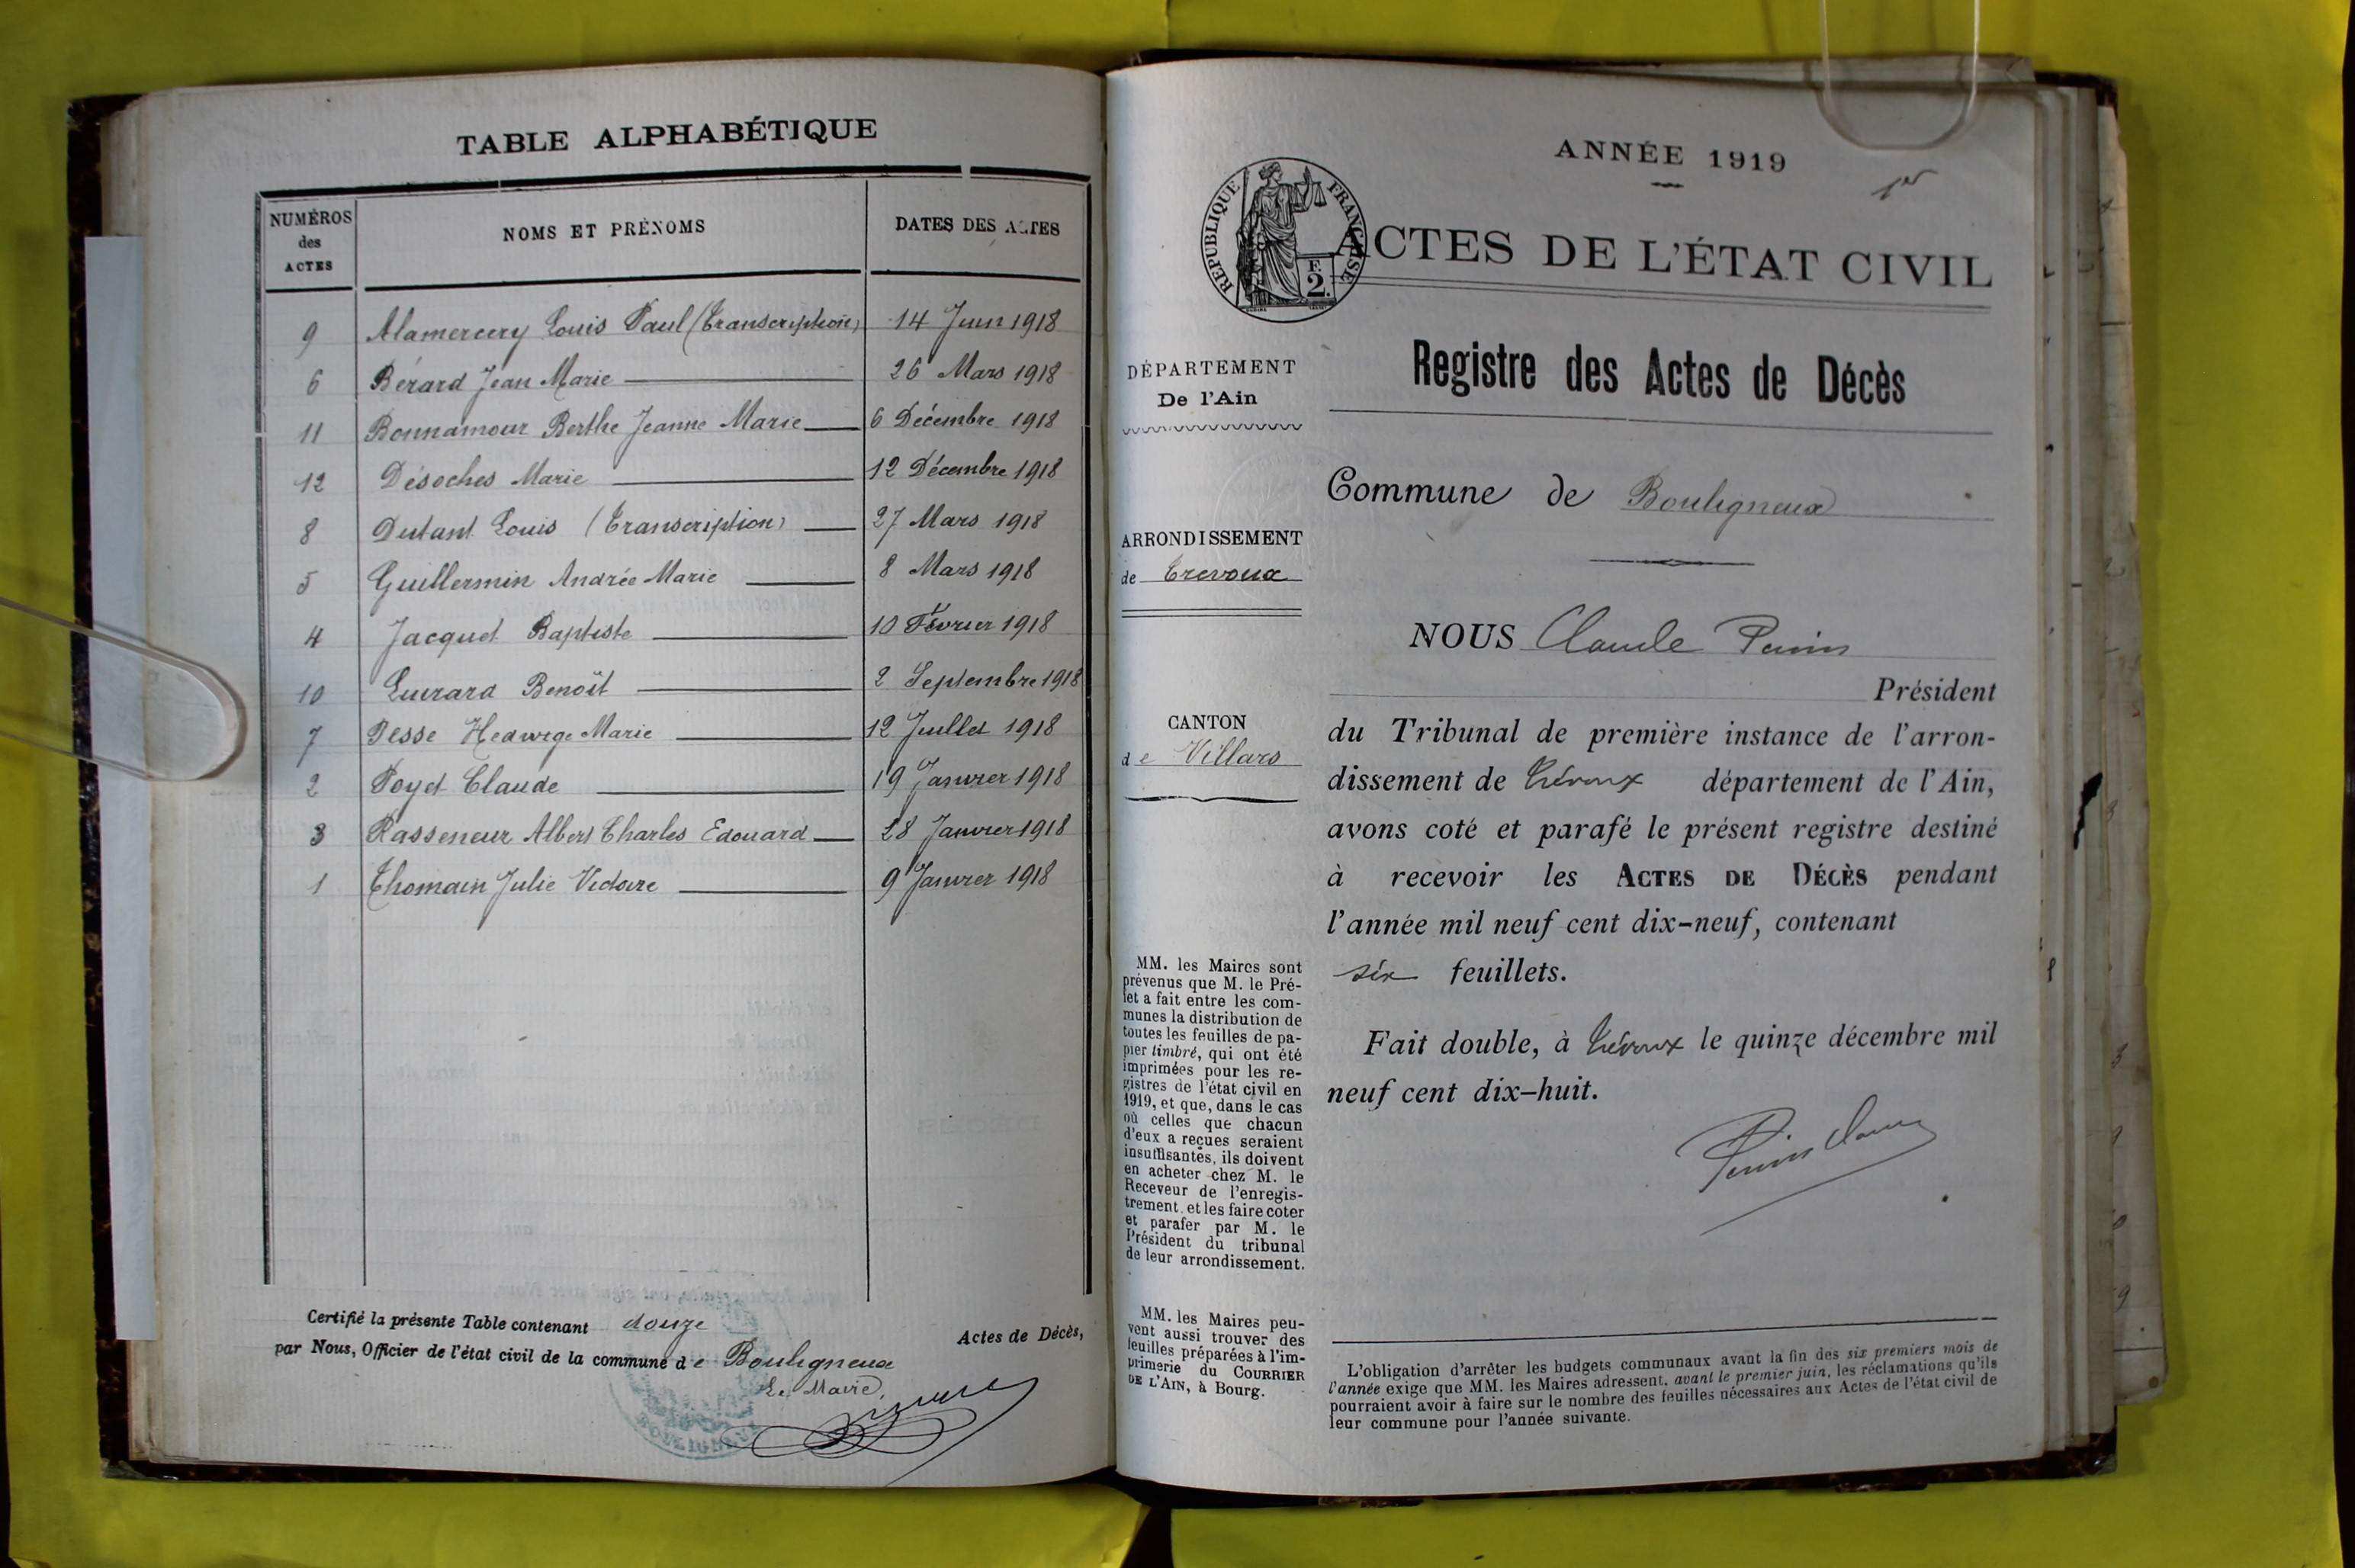 TABLE ALPHABÉTIQUE
NUMÉROS des ACTES NOMS ET PRÉNOMS DATES DES ACTES
9 Alamercery Louis Paul (Transcription) 14 Juin 1918
6 Bérard Jean Marie 26 Mars 1918
11 Bonnamour Berthe Jeanne Marie 6 Décembre 1918
12 Désoches Marie 12 Décembre 1918
8 Dutant Louis (Transcription) 27 Mars 1918
5 Guillermin Andrée Marie 8 Mars 1918
4 Jacquet Baptiste 10 Février 1918
10 Benoît 2 Septembre 1918
7 Pesse Hedwige Marie 12 Juillet 1918
2 Poyet Claude 19 Janvier 1918
3 Rasseneur Albert Charles Edouard 28 Janvier 1918
1 Thomain Julie Victoire 9 Janvier 1918
Certifié la présente Table contenant douze Actes de Décès,
par Nous, Officier de l'état civil de la commune de Bouligneux
Le Maire,
ANNÉE 1919
1er
RÉPUBLIQUE FRANÇAISE
F.
2.
ACTES DE L'ÉTAT CIVIL
Registre des Actes de Décès
DÉPARTEMENT
De l'Ain
ARRONDISSEMENT
de Trevoux
CANTON
de Villars
MM. les Maires sont
prévenus que M. le Pré-
fet a fait entre les com-
munes la distribution de
toutes les feuilles de pa-
pier timbré, qui ont été
imprimées pour les re-
gistres de l'état civil en
1919, et que, dans le cas
où celles que chacun
d'eux a reçues seraient
insuffisantes, ils doivent
en acheter chez M. le
Receveur de l'enregis-
trement, et les faire coter
et parafer par M. le
Président du tribunal
de leur arrondissement.
MM. les Maires peu-
vent aussi trouver des
feuilles préparées à l'im-
primerie du COURRIER
DE L'AIN, à Bourg.
Commune de Bouligneux
NOUS Claude Perrin
Président
du Tribunal de première instance de l'arron-
dissement de Trévoux département de l'Ain,
avons coté et parafé le présent registre destiné
à recevoir les ACTES DE DÉCÈS pendant
l'année mil neuf cent dix-neuf, contenant
six feuillets.
Fait double, à Trévoux le quinze décembre mil
neuf cent dix-huit.
L'obligation d'arrêter les budgets communaux avant la fin des six premiers mois de
l'année exige que MM. les Maires adressent, avant le premier juin, les réclamations qu'ils
pourraient avoir à faire sur le nombre des feuilles nécessaires aux Actes de l'état civil de
leur commune pour l'année suivante.